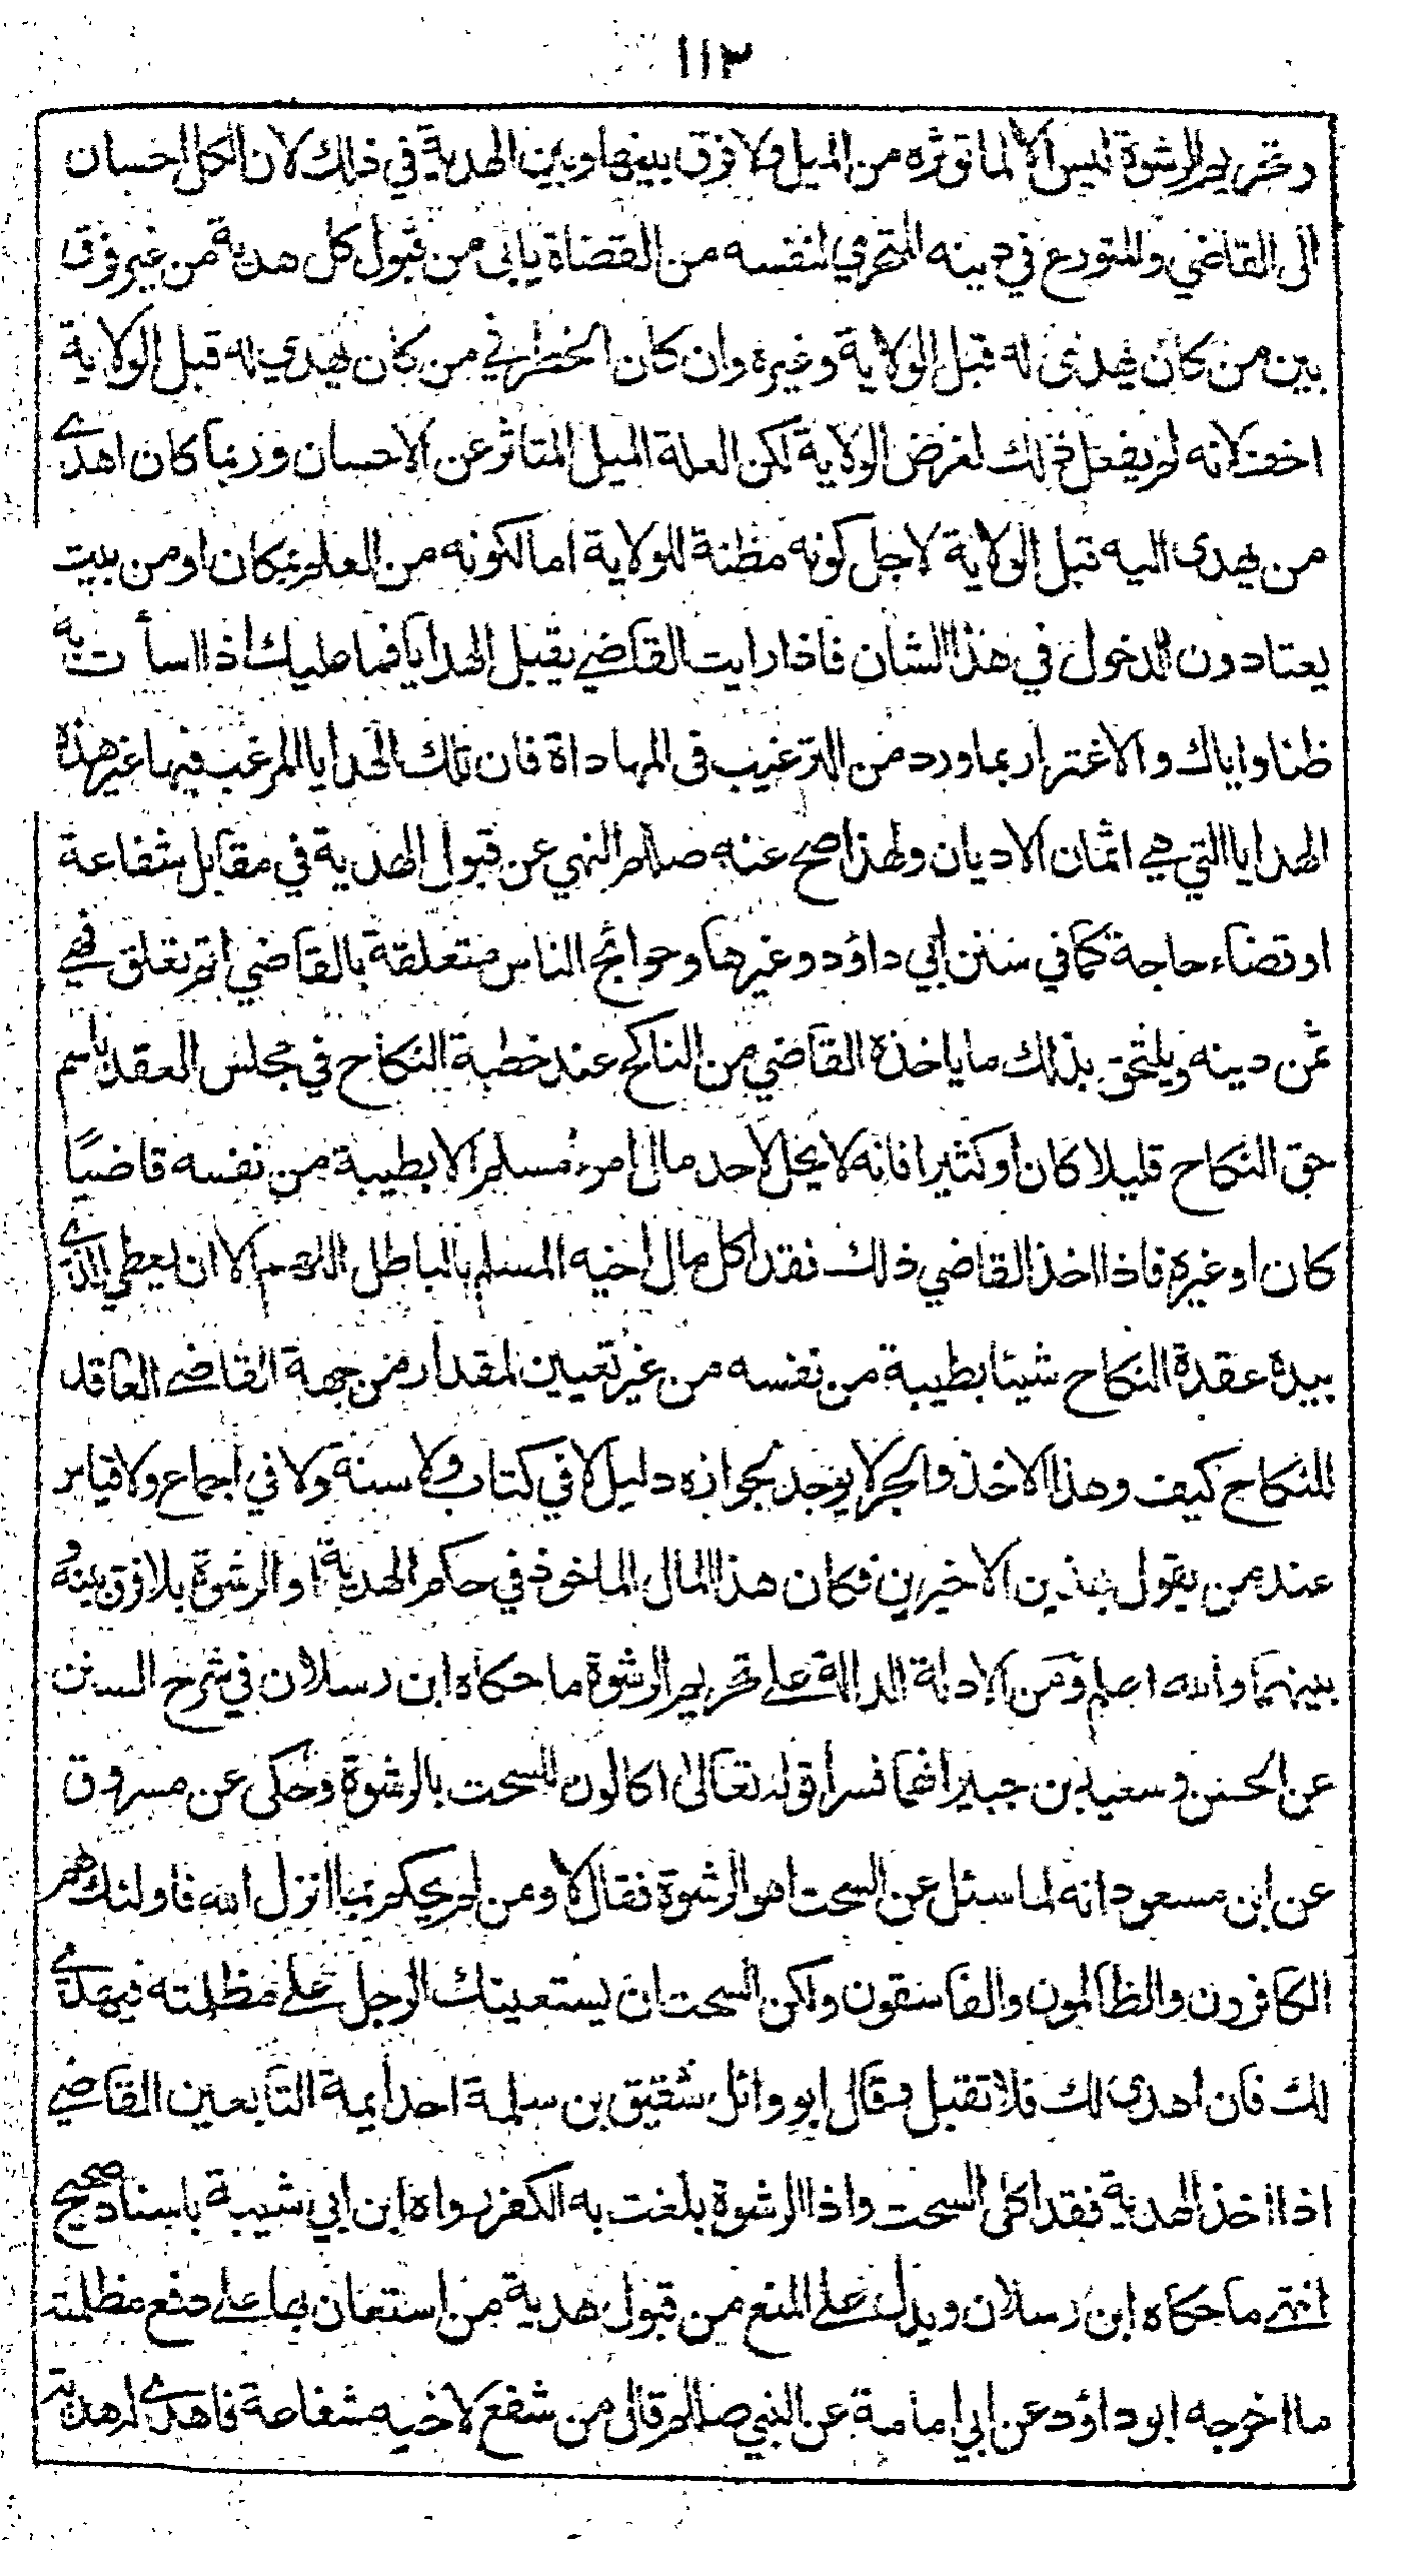 ١١٣
وتحريم الرشوة ليس الا لما توثره من الميل ولا فرق بينها وبين الهدية في ذلك لان الكل احسان
الى القاضي والمتورع في دينه المتحري لنفسه من القضاة يابى من قبول كل هدية من غير فرق
بين من كان يهدى له قبل الولاية وغيره وان كان الخطر في من كان يهدي له قبل الولاية
اخف لانه لم يفعل ذلك لغرض الولاية لكن العلة الميل المتاثر عن الاحسان وربما كان اهدى
من يهدى اليه قبل الولاية لاجل كونه مظنة للولاية اما لكونه من العلم بمكان او من بيت
يعتادون الدخول في هذا الشان فاذا رايت القاضي يقبل الهدايا فما عليك اذا اسأت به
ظنا واياك والاغترار بما ورد من الترغيب في المهاداة فان تلك الهدايا المرغب فيها غير هذه
الهدايا التي هي اثمان الاديان ولهذا صح عنه صللم النهي عن قبول الهدية في مقابل شفاعة
او قضاء حاجة كما في سنن أبي داؤد وغيرها وحوائج الناس متعلقة بالقاضي اتم تعلق فهي
ثمن دينه ويلتحق بذلك ما ياخذه القاضي من الناكح عند خطبة النكاح في مجلس العقد باسم
حق النكاح قليلا كان او كثيرا فانه لا يحل لاحد مال امرء مسلم الا بطيبة من نفسه قاضيًا
كان او غيره فاذا اخذ القاضي ذلك فقد اكل مال اخيه المسلم بالباطل اللهم الا ان يعطي الذي
بيده عقدة النكاح شيئا بطيبة من نفسه من غير تعيين لمقدار من جهة القاضي العاقد
للنكاح كيف وهذا الاخذ والجر لا يوجد بجوازه دليل لا في كتاب ولا سنة ولا في اجماع ولا قياس
عند من يقول بهذين الاخيرين فكان هذا المال الماخوذ في حكم الهدية او الرشوة بلا فرق بينه و
بينهما والله اعلم ومن الادلة الدالة على تحريم الرشوة ما حكاه ابن رسلان في شرح السنن
عن الحسن وسعيد بن جبير انهما فسرا قوله تعالى اكالون للسحت بالرشوة وحكى عن مسروق
عن ابن مسعود انه لما سئل عن السحت اهو الرشوة فقال لا ومن لم يحكم بما انزل الله فاولئك هم
الكافرون والظالمون والفاسقون ولكن السحت ان يستعينك الرجل على مظلمته فيهدي
لك فان اهدى لك فلا تقبل وقال ابو وائل شقيق بن سلمة احد ايمة التابعين القاضي
اذا اخذ الهدية فقد اكل السحت واذا الرشوة بلغت به الكفر رواه ابن ابي شيبة باسناد صحيح
انتهى ما حكاه ابن رسلان ويدل على المنع من قبول هدية من استعان بها على دفع مظلمته
ما اخرجه ابو داؤد عن ابي امامة عن النبي صللم قال من شفع لاخيه شفاعة فاهدى له هدية